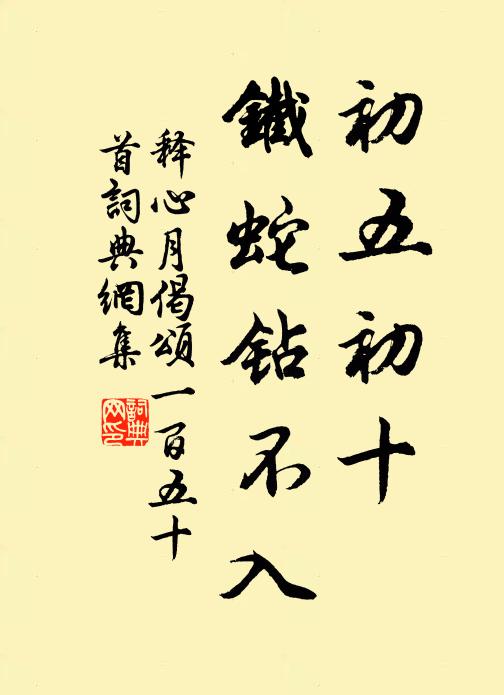 初五初十
鐵蛇钻不入
释心月偈頌一百五十
首詞典網集
詞典
网印